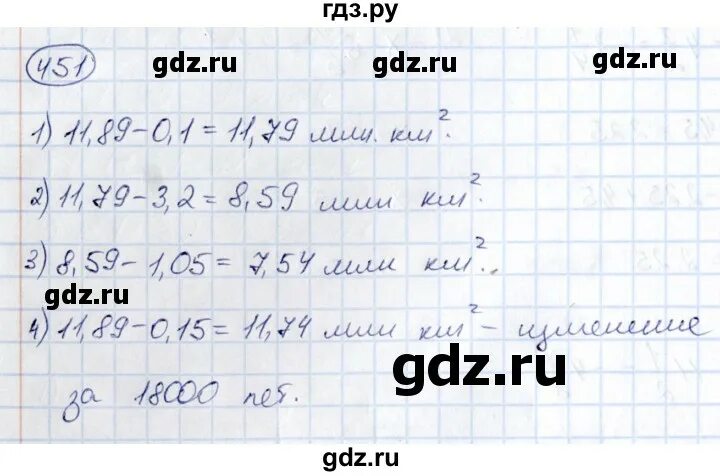 гдз.ру
451 gdz.ru gdz.ru
1) 11,89-0,1=11,79 млн. км².
2) 11,79-3,2=8,59 млн км².
3) 8,59-1,05=7,54 млн км².
gdz.ru
4) 11,89-0,15=11,74 млн км² - изменение
gdz.ru
за 18000 лет.
gdz.ru